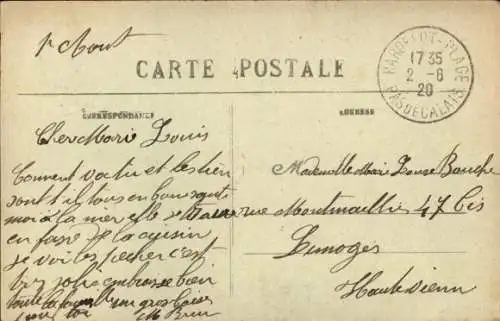 1r Aout
CARTE POSTALE
HARDELOT-PLAGE
17 35
2 - 8
20
PAS DE CALAIS
CORRESPONDANCE
ADRESSE
Cher Marie Louis
Comment va tu et les tien
sont t'il tous en bon sante
moi a la mer elle
en face cousin
se voi les pecher c'est
tres jolie embrasse bien
toute la famille un gros baiser
pour toi
M Brun
Mademoiselle Marie Louise Bauche
rue Montmailler 47 bis
Limoges
Haute vienn